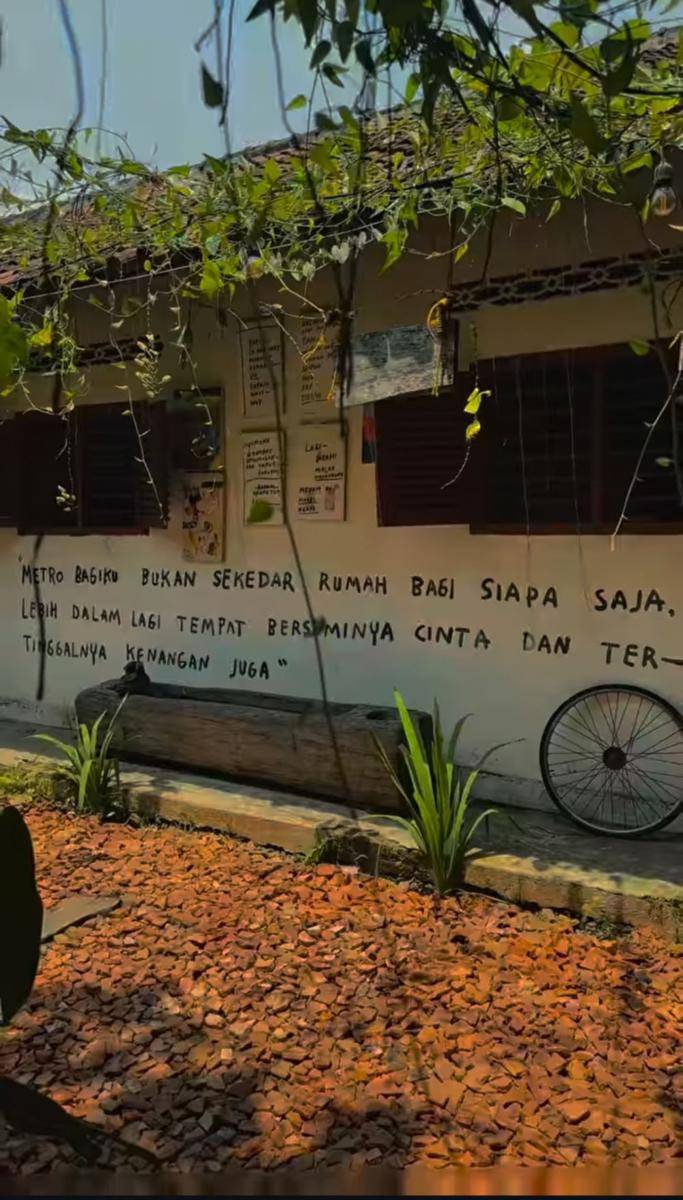 LAGI-
"METRO BAGIKU BUKAN SEKEDAR RUMAH BAGI SIAPA SAJA.
LEBIH DALAM LAGI TEMPAT BERSEMINYA CINTA DAN TER-
TINGGALNYA KENANGAN JUGA"